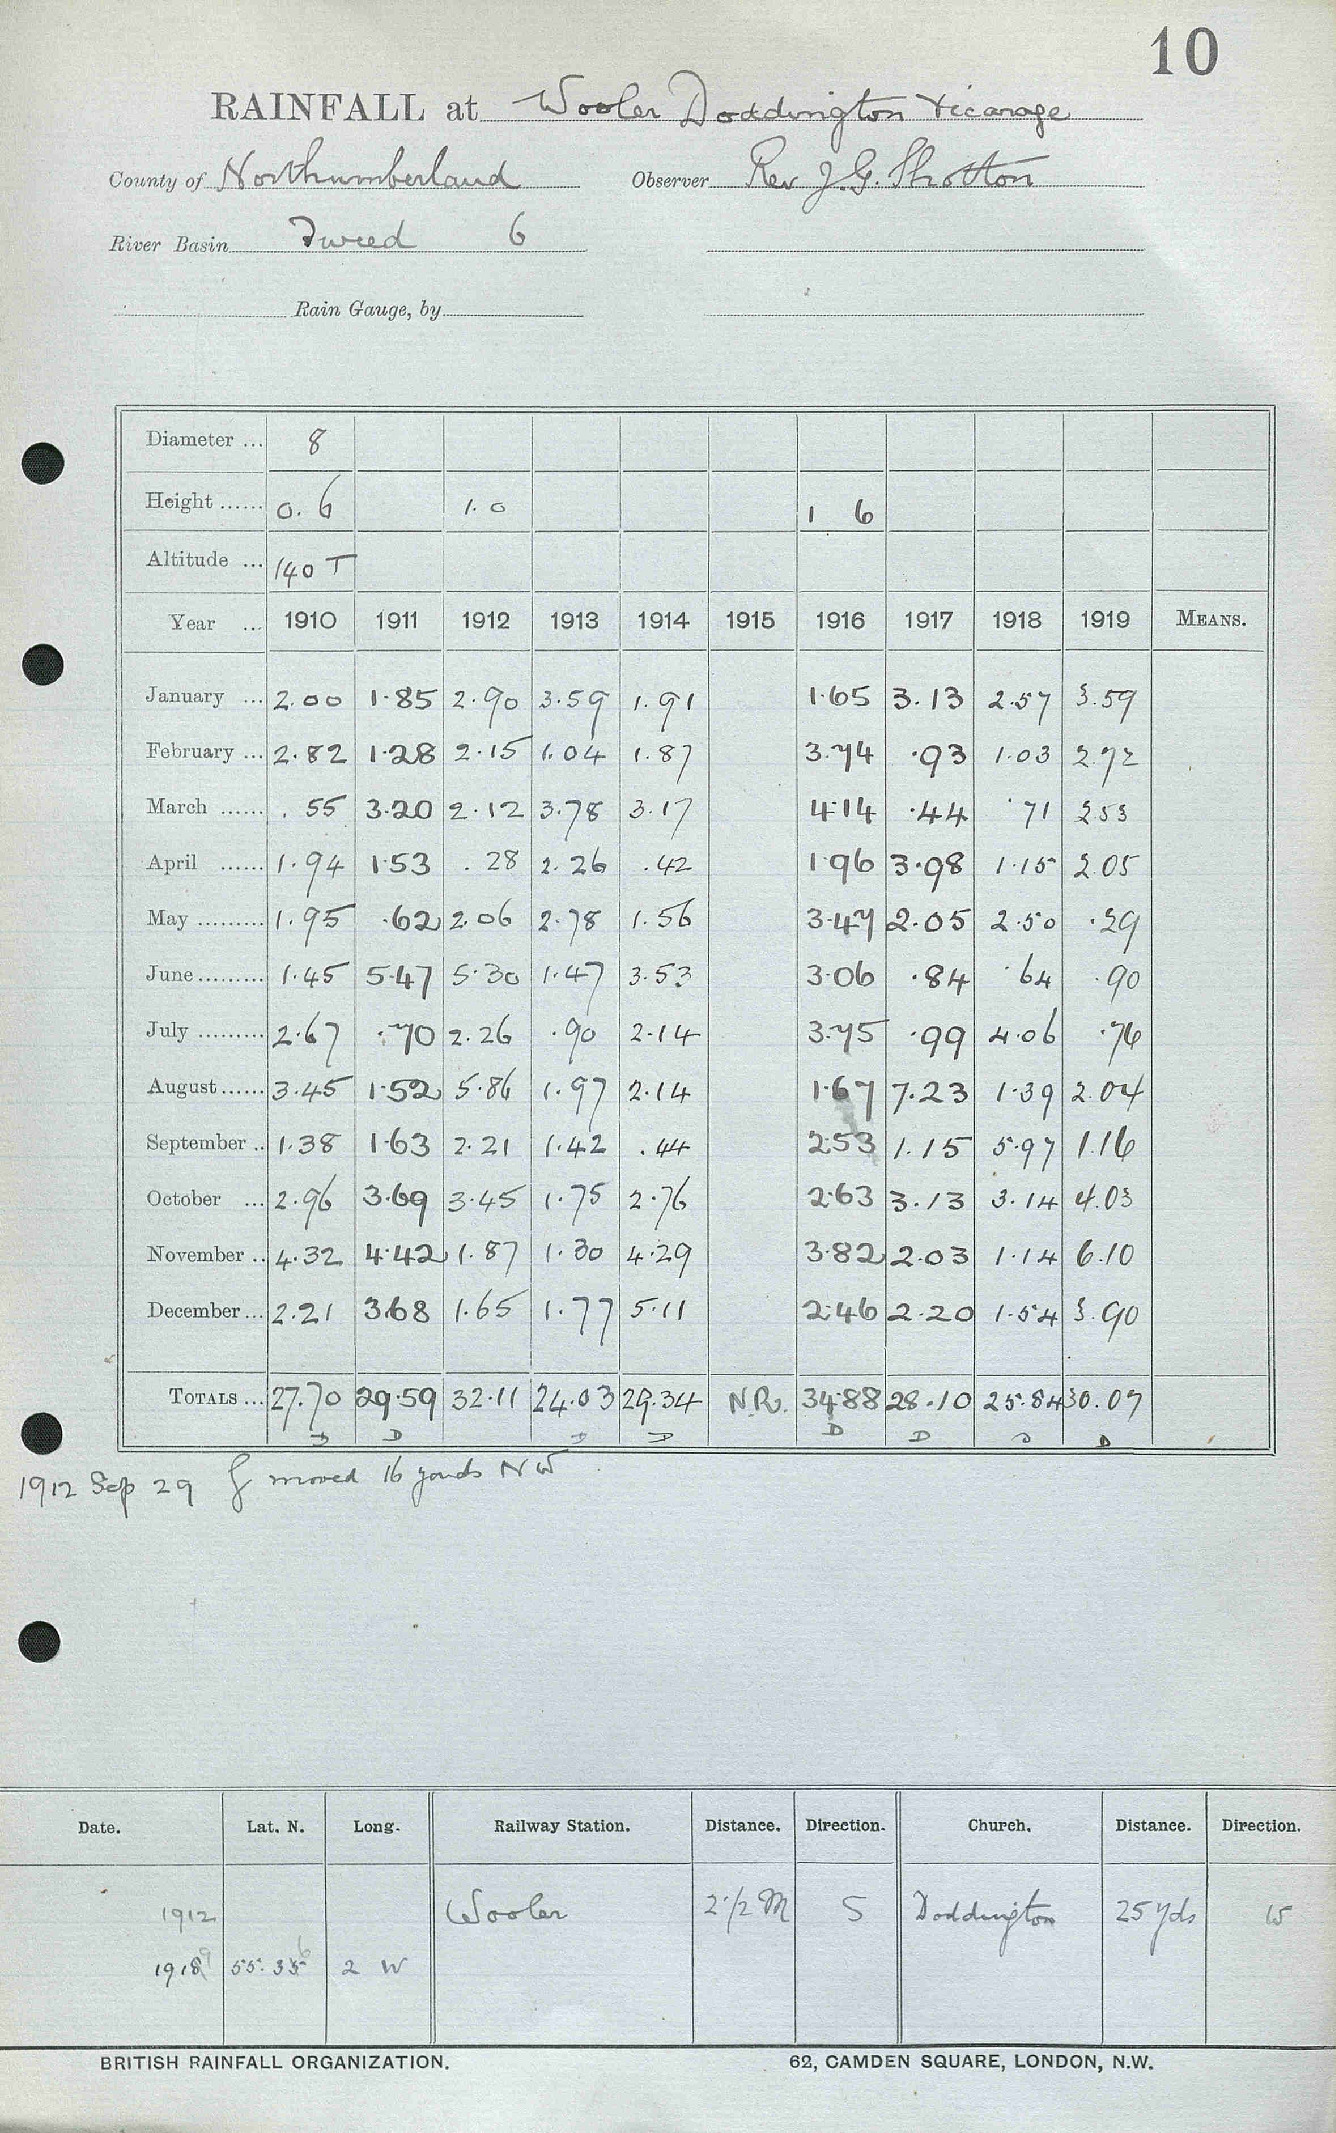 10
RAINFALL at Wooler Doddington Vicarage
County of Northumberland Observer Rev J. G. Shotton
River Basin Tweed 6
Rain Gauge, by
Diameter ... 8
Height ...... 0.6 1.0 1 6
Altitude ... 140 T
Year ... 1910 1911 1912 1913 1914 1915 1916 1917 1918 1919 MEANS.
January ... 2.00 1.85 2.90 3.59 1.91 1.65 3.13 2.57 3.59
February ... 2.82 1.28 2.15 1.04 1.87 3.74 .93 1.03 2.72
March ...... .55 3.20 2.12 3.78 3.17 4.14 .44 .71 2.53
April ...... 1.94 1.53 .28 2.26 .42 1.96 3.98 1.15 2.05
May ......... 1.95 .62 2.06 2.78 1.56 3.47 2.05 2.50 .29
June ......... 1.45 5.47 5.30 1.47 3.53 3.06 .84 .64 .90
July ......... 2.67 .70 2.26 .90 2.14 3.75 .99 4.06 .76
August ...... 3.45 1.52 5.86 1.97 2.14 1.67 7.23 1.39 2.04
September .. 1.38 1.63 2.21 1.42 .44 2.53 1.15 5.97 1.16
October ... 2.96 3.69 3.45 1.75 2.76 2.63 3.13 3.14 4.03
November .. 4.32 4.42 1.87 1.30 4.29 3.82 2.03 1.14 6.10
December ... 2.21 3.68 1.65 1.77 5.11 2.46 2.20 1.54 3.90
TOTALS ... 27.70 29.59 32.11 24.03 29.34 N.R. 34.88 28.10 25.84 30.07
D D D D D D D D
1912 Sep 29 g moved 16 yards NW
Date. Lat. N. Long. Railway Station. Distance. Direction. Church. Distance. Direction.
1912 Wooler 2 1/2 M S Doddington 25 yds W
1918 55.35 2 W
BRITISH RAINFALL ORGANIZATION. 62, CAMDEN SQUARE, LONDON, N.W.